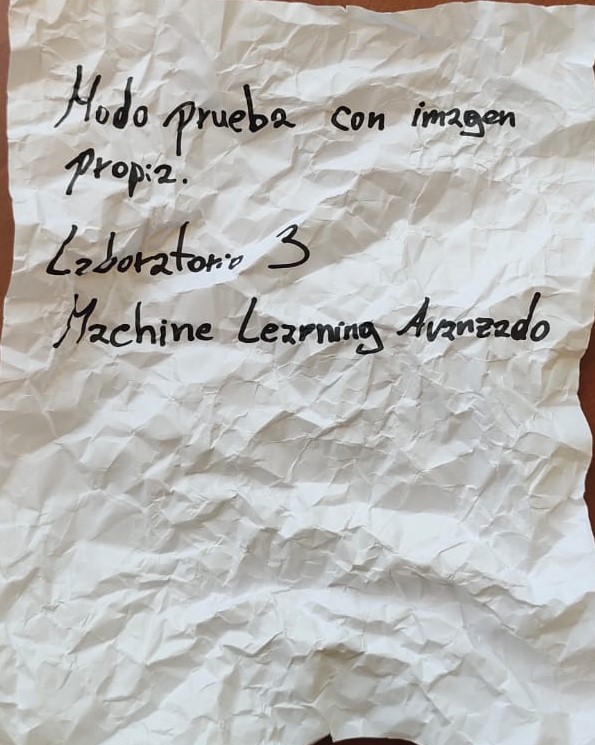 Modo prueba con imagen
propia.
Laboratorio 3
Machine Learning Avanzado